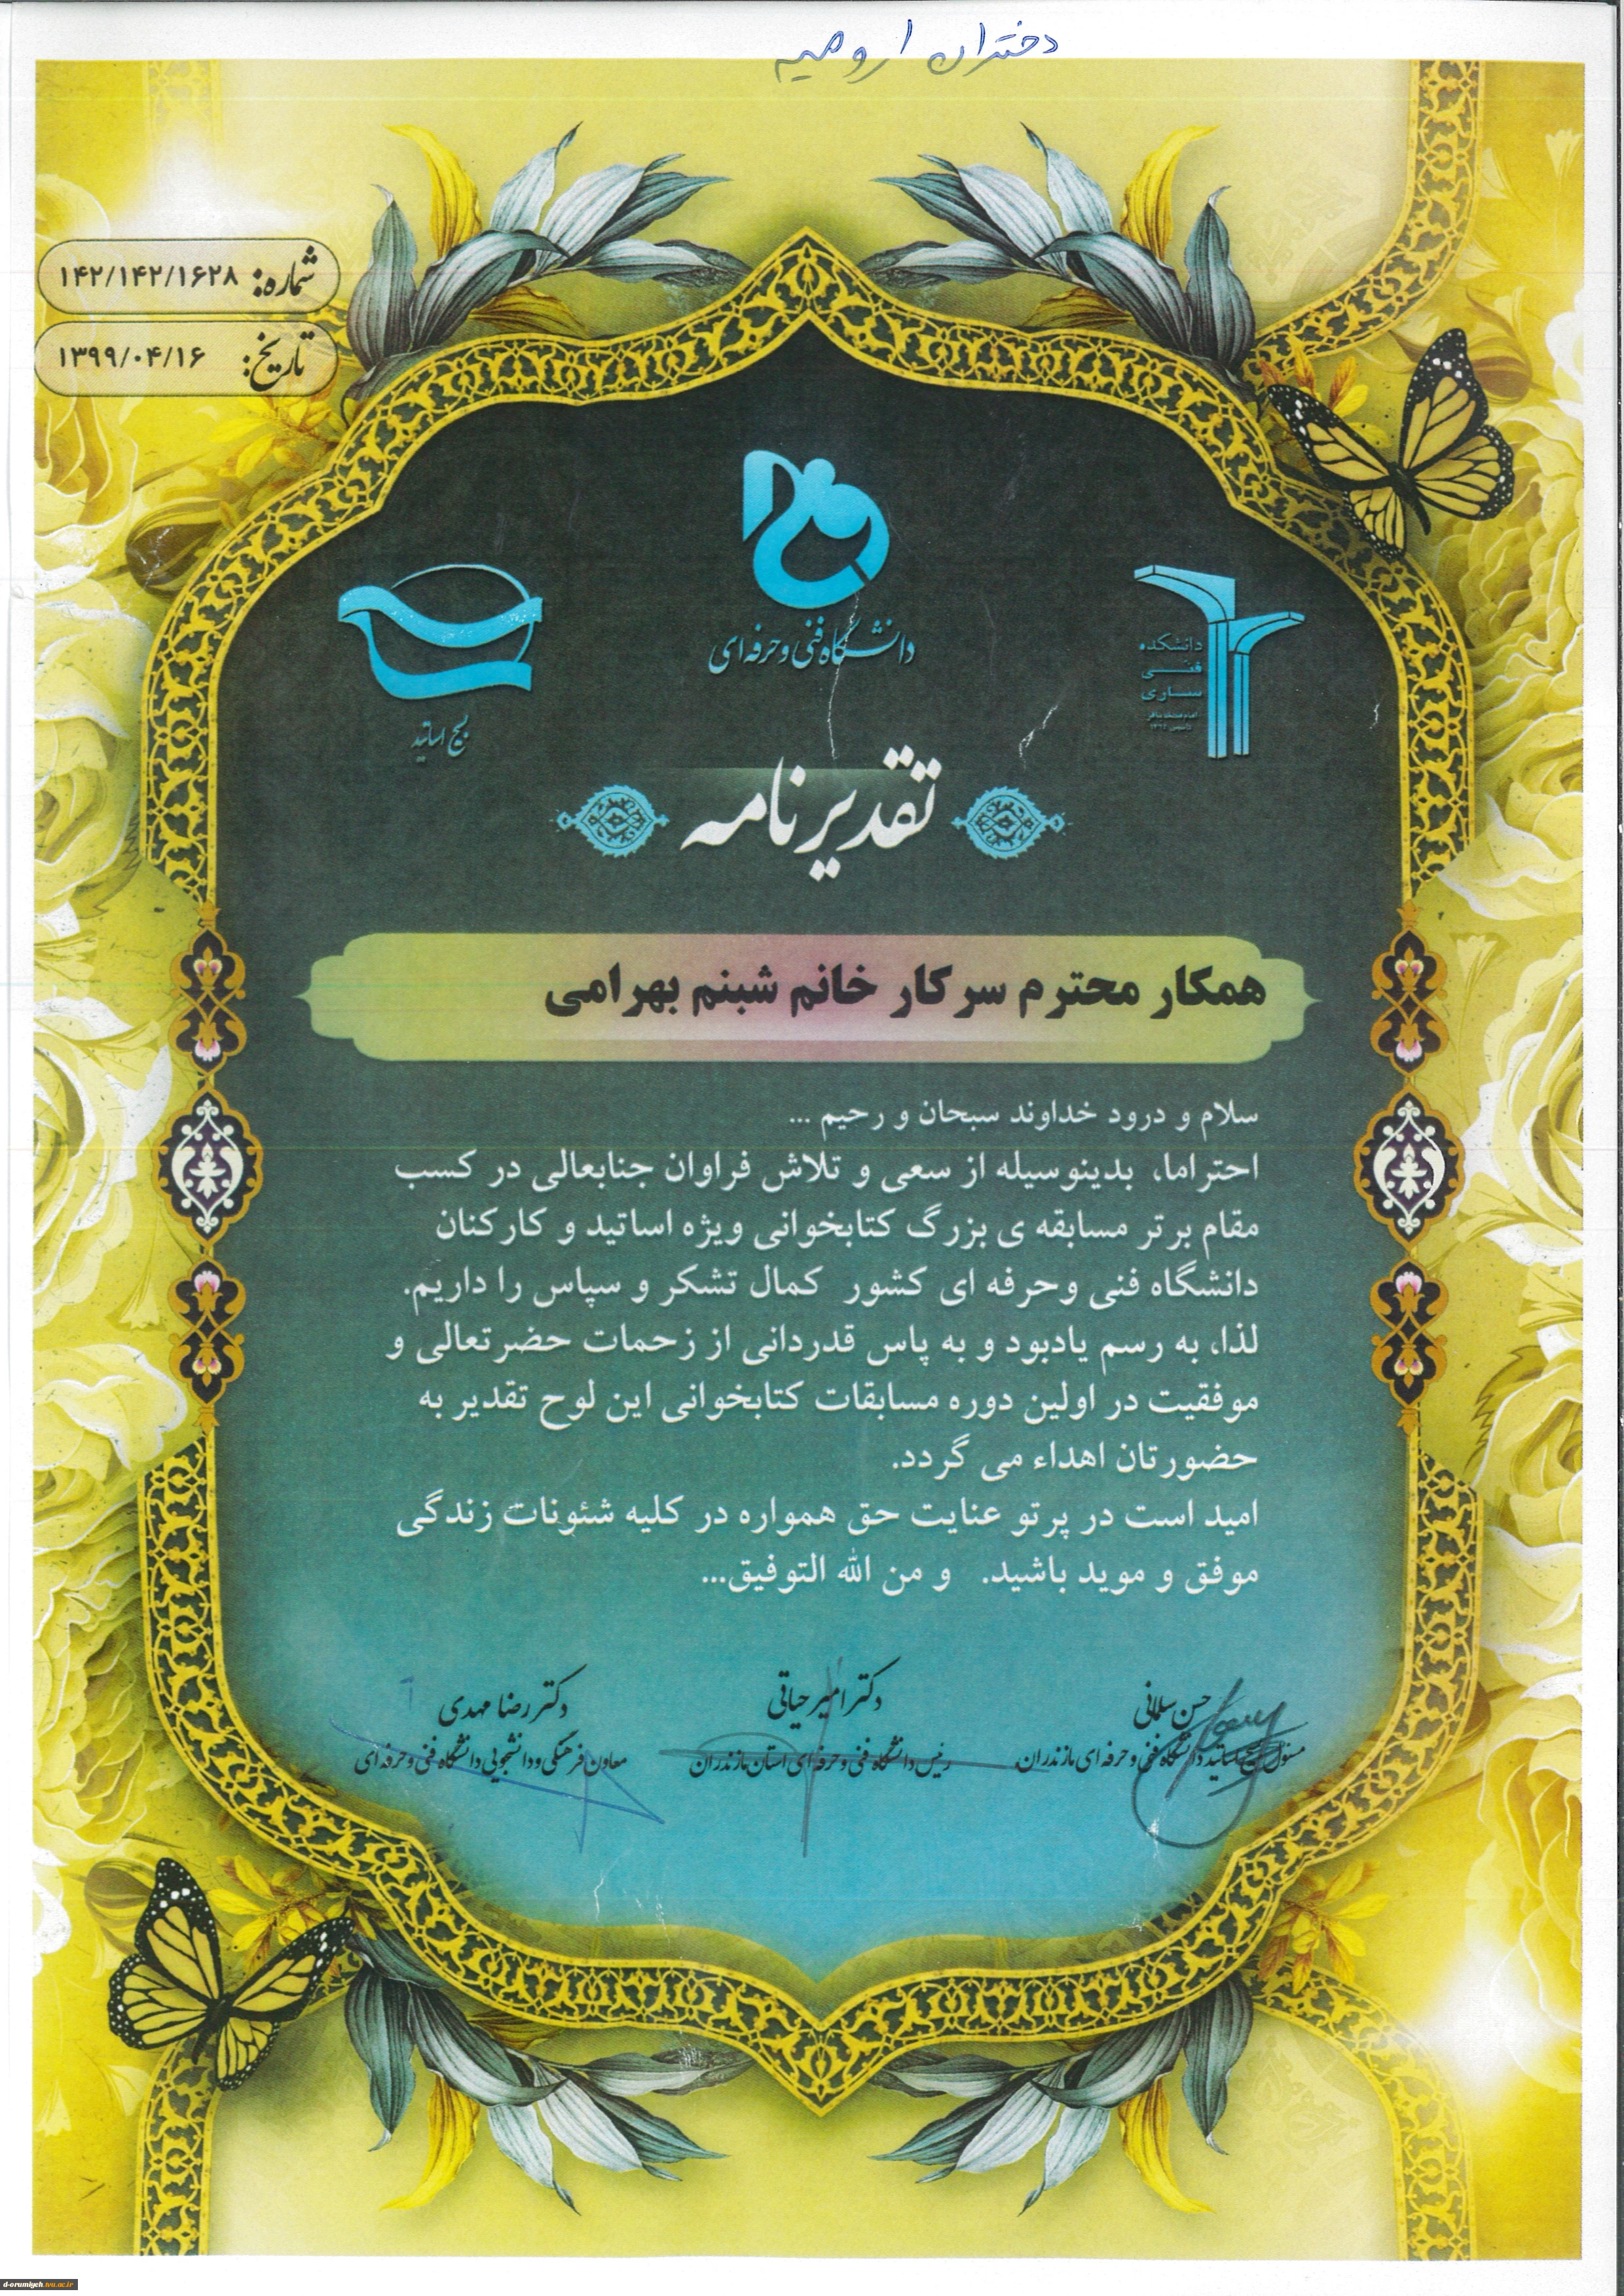 دختران ارومیه
شماره: ۱۴۲/۱۴۲/۱۶۲۸
تاریخ: ۱۳۹۹/۰۴/۱۶
دانشگاه فنی و حرفه ای
دانشکده
فنی
ساری
بسیج اساتید
تقدیرنامه
همکار محترم سرکار خانم شبنم بهرامی
سلام و درود خداوند سبحان و رحیم ...
احتراما، بدینوسیله از سعی و تلاش فراوان جنابعالی در کسب
مقام برتر مسابقه ی بزرگ کتابخوانی ویژه اساتید و کارکنان
دانشگاه فنی وحرفه ای کشور کمال تشکر و سپاس را داریم.
لذا، به رسم یادبود و به پاس قدردانی از زحمات حضرتعالی و
موفقیت در اولین دوره مسابقات کتابخوانی این لوح تقدیر به
حضورتان اهداء می گردد.
امید است در پرتو عنایت حق همواره در کلیه شئونات زندگی
موفق و موید باشید. و من الله التوفیق...
حسن سلمانی
مسئول بسیج اساتید دانشگاه فنی و حرفه ای مازندران
دکتر امیر حیاتی
رئیس دانشگاه فنی و حرفه ای استان مازندران
دکتر رضا مهدی
معاون فرهنگی و دانشجویی دانشگاه فنی و حرفه ای
d-orumiyeh.tvu.ac.ir